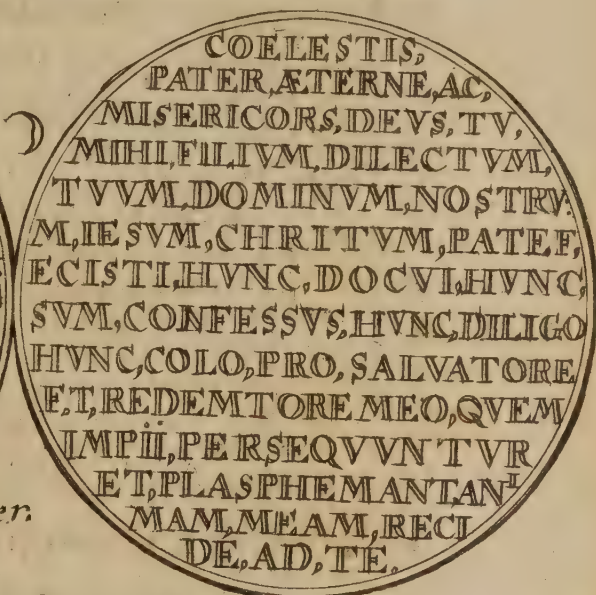 COELESTIS,
PATER, ÆTERNE, AC,
MISERICORS, DEVS, TV,
MIHI, FILIVM, DILECTVM,
TVVM, DOMINVM, NOSTRV:
M, IESVM, CHRITVM, PATEF,
ECISTI, HVNC, DOCVI, HVNC,
SVM, CONFESSVS, HVNC, DILIGO
HVNC, COLO, PRO, SALVATORE
E,T, REDEMTORE MEO, QVEM
IMPII, PERSEQVVNTVR
ET, PLASPHEMANT, ANI
MAM, MEAM, RECI
DÉ, AD, TE.
er.